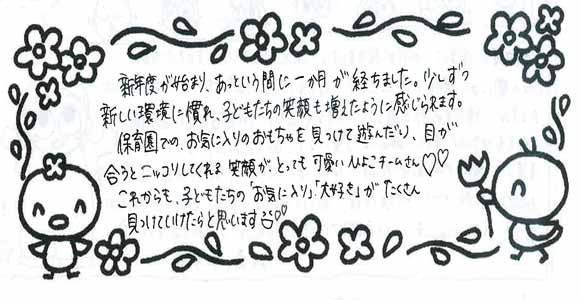 新年度が始まり、あっという間に一か月が経ちました。少しずつ
新しい環境に慣れ、子どもたちの笑顔も増えたように感じられます。
保育園での、お気に入りのおもちゃを見つけて遊んだり、目が
合うとニッコリしてくれる笑顔が、とっても可愛いひよこチームさん♡♡
これからも、子どもたちの「お気に入り」、「大好き」がたくさん
見つけていけたらと思います♡♡